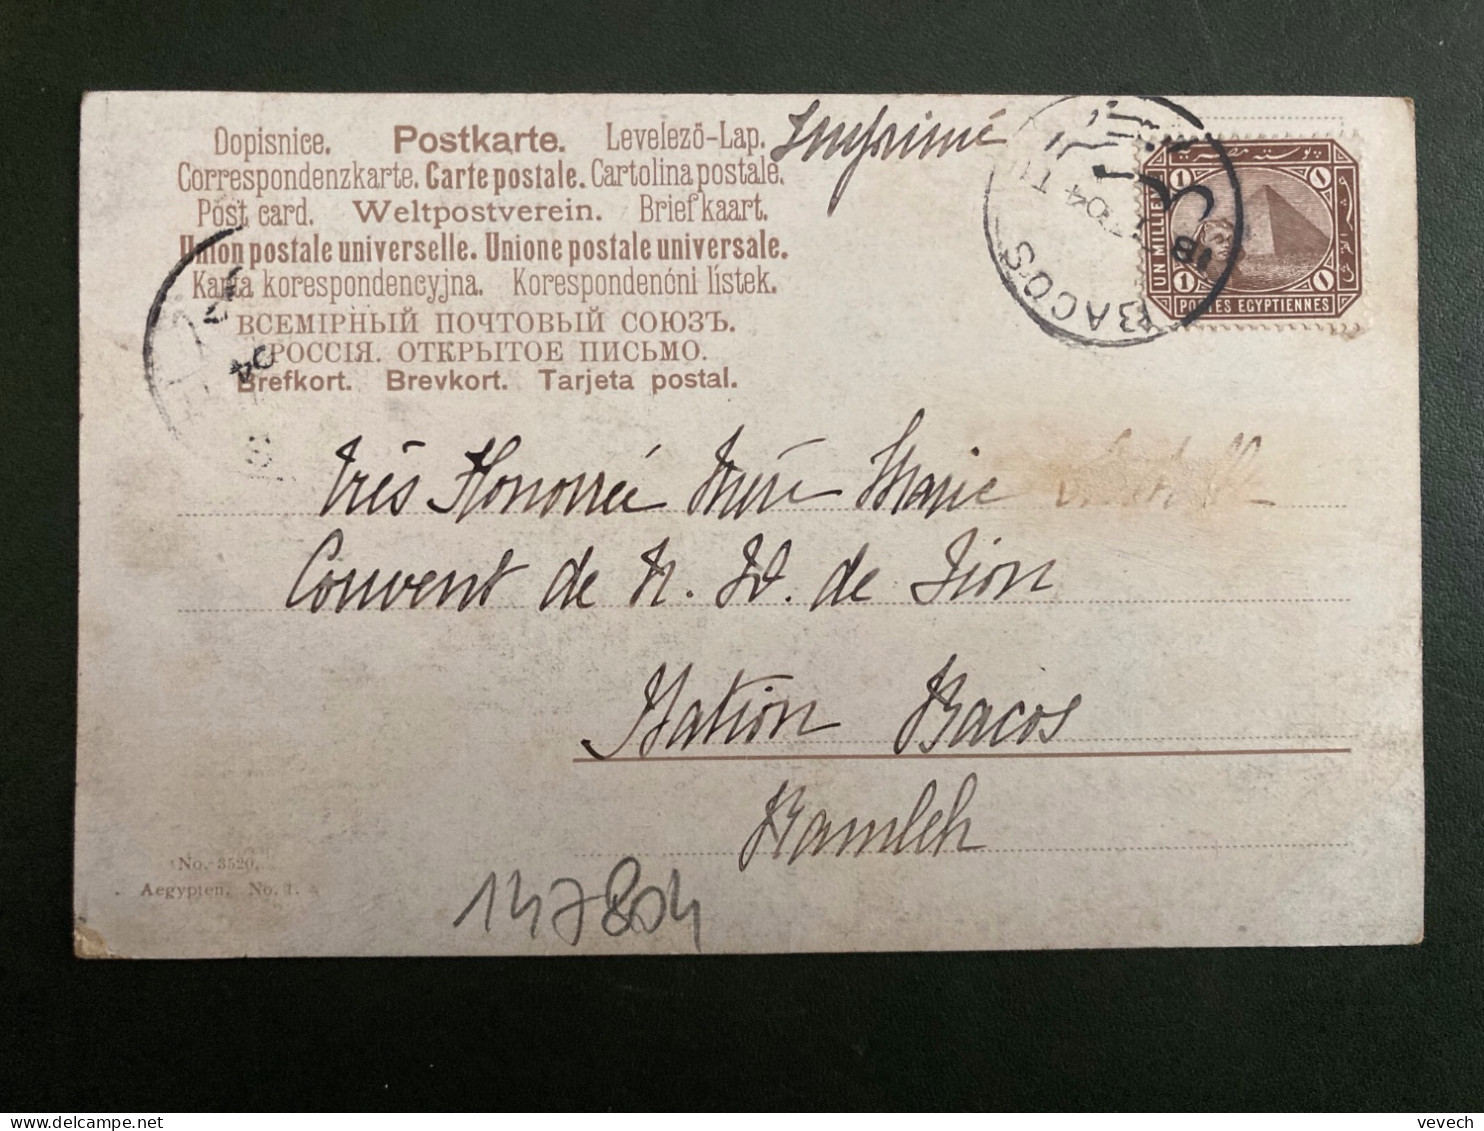 Dopisnice. Postkarte. Levelező-Lap.
Correspondenzkarte. Carte postale. Cartolina postale.
Post card. Weltpostverein. Briefkaart.
Union postale universelle. Unione postale universale.
Karta korespondencyjna. Korespondenční lístek.
ВСЕМІРНЫЙ ПОЧТОВЫЙ СОЮЗЪ.
РОССІЯ. ОТКРЫТОЕ ПИСЬМО.
Brefkort. Brevkort. Tarjeta postal.
Imprimé
BACOS
04
بوستة مصرية
1 ١
UN MILLIEME
1 ١
POSTES EGYPTIENNES
04
très Honorée Mère Marie
Couvent de N. D. de Sion
Station Bacos
Ramleh
No. 3520.
Aegypten. No. 1.
147804
vevech